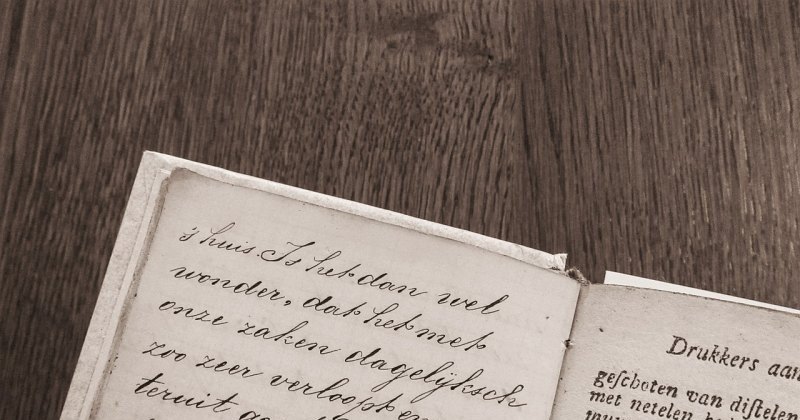 's huis. Is het dan wel
wonder, dat het met
onze zaken dagelijksch
zoo zeer verloopt en
teruit
Drukkers aan
geſchoten van diſtele
met netelen